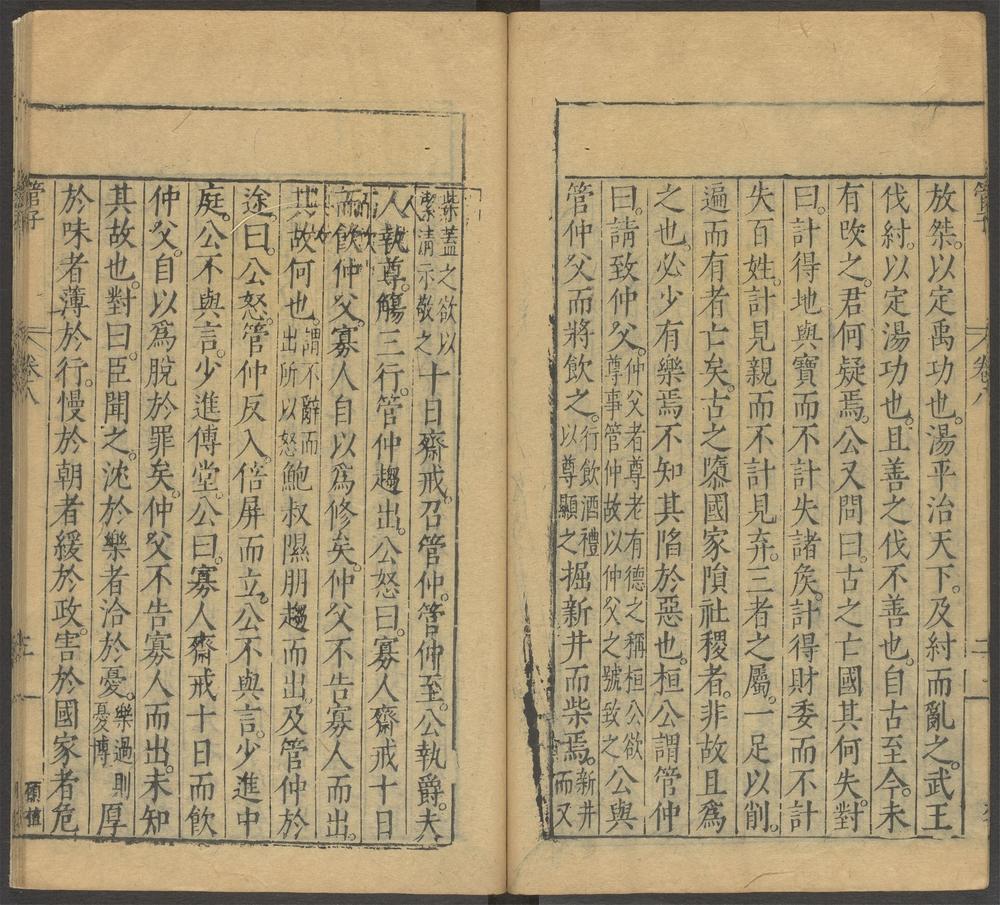 放桀。以定禹功也。湯平治天下。及紂而亂之。武王
伐紂。以定湯功也。且善之伐不善也。自古至今。未
有改之。君何疑焉。公又問曰。古之亡國其何失。對
曰。計得地與寶而不計失諸矦。計得財委而不計
失百姓。計見親而不計見弃。三者之屬。一足以削。
遍而有者亡矣。古之隳國家隕社稷者。非故且爲
之也。必少有樂焉。不知其陷於惡也。桓公謂管仲
曰。請致仲父。仲父者尊老有德之稱桓公欲尊事管仲故以仲父之號致之公與
管仲父而將飲之。行飲酒禮以尊顯之掘新井而柴焉。新井而又
柴蓋之欲以潔清示敬之十日齋戒。召管仲。管仲至。公執爵。夫
人執尊。觴三行。管仲趨出。公怒曰。寡人齋戒十日
而飲仲父。寡人自以爲修矣。仲父不告寡人而出。
其故何也。謂不辭而出所以怒鮑叔隰朋趨而出。及管仲於
途。曰。公怒。管仲反入。倍屏而立。公不與言。少進中
庭。公不與言。少進傅堂。公曰。寡人齋戒十日而飲
仲父。自以爲脫於罪矣。仲父不告寡人而出。未知
其故也。對曰。臣聞之。沈於樂者洽於憂。樂過則憂博厚
於味者薄於行。慢於朝者緩於政。害於國家者危
管子
卷八